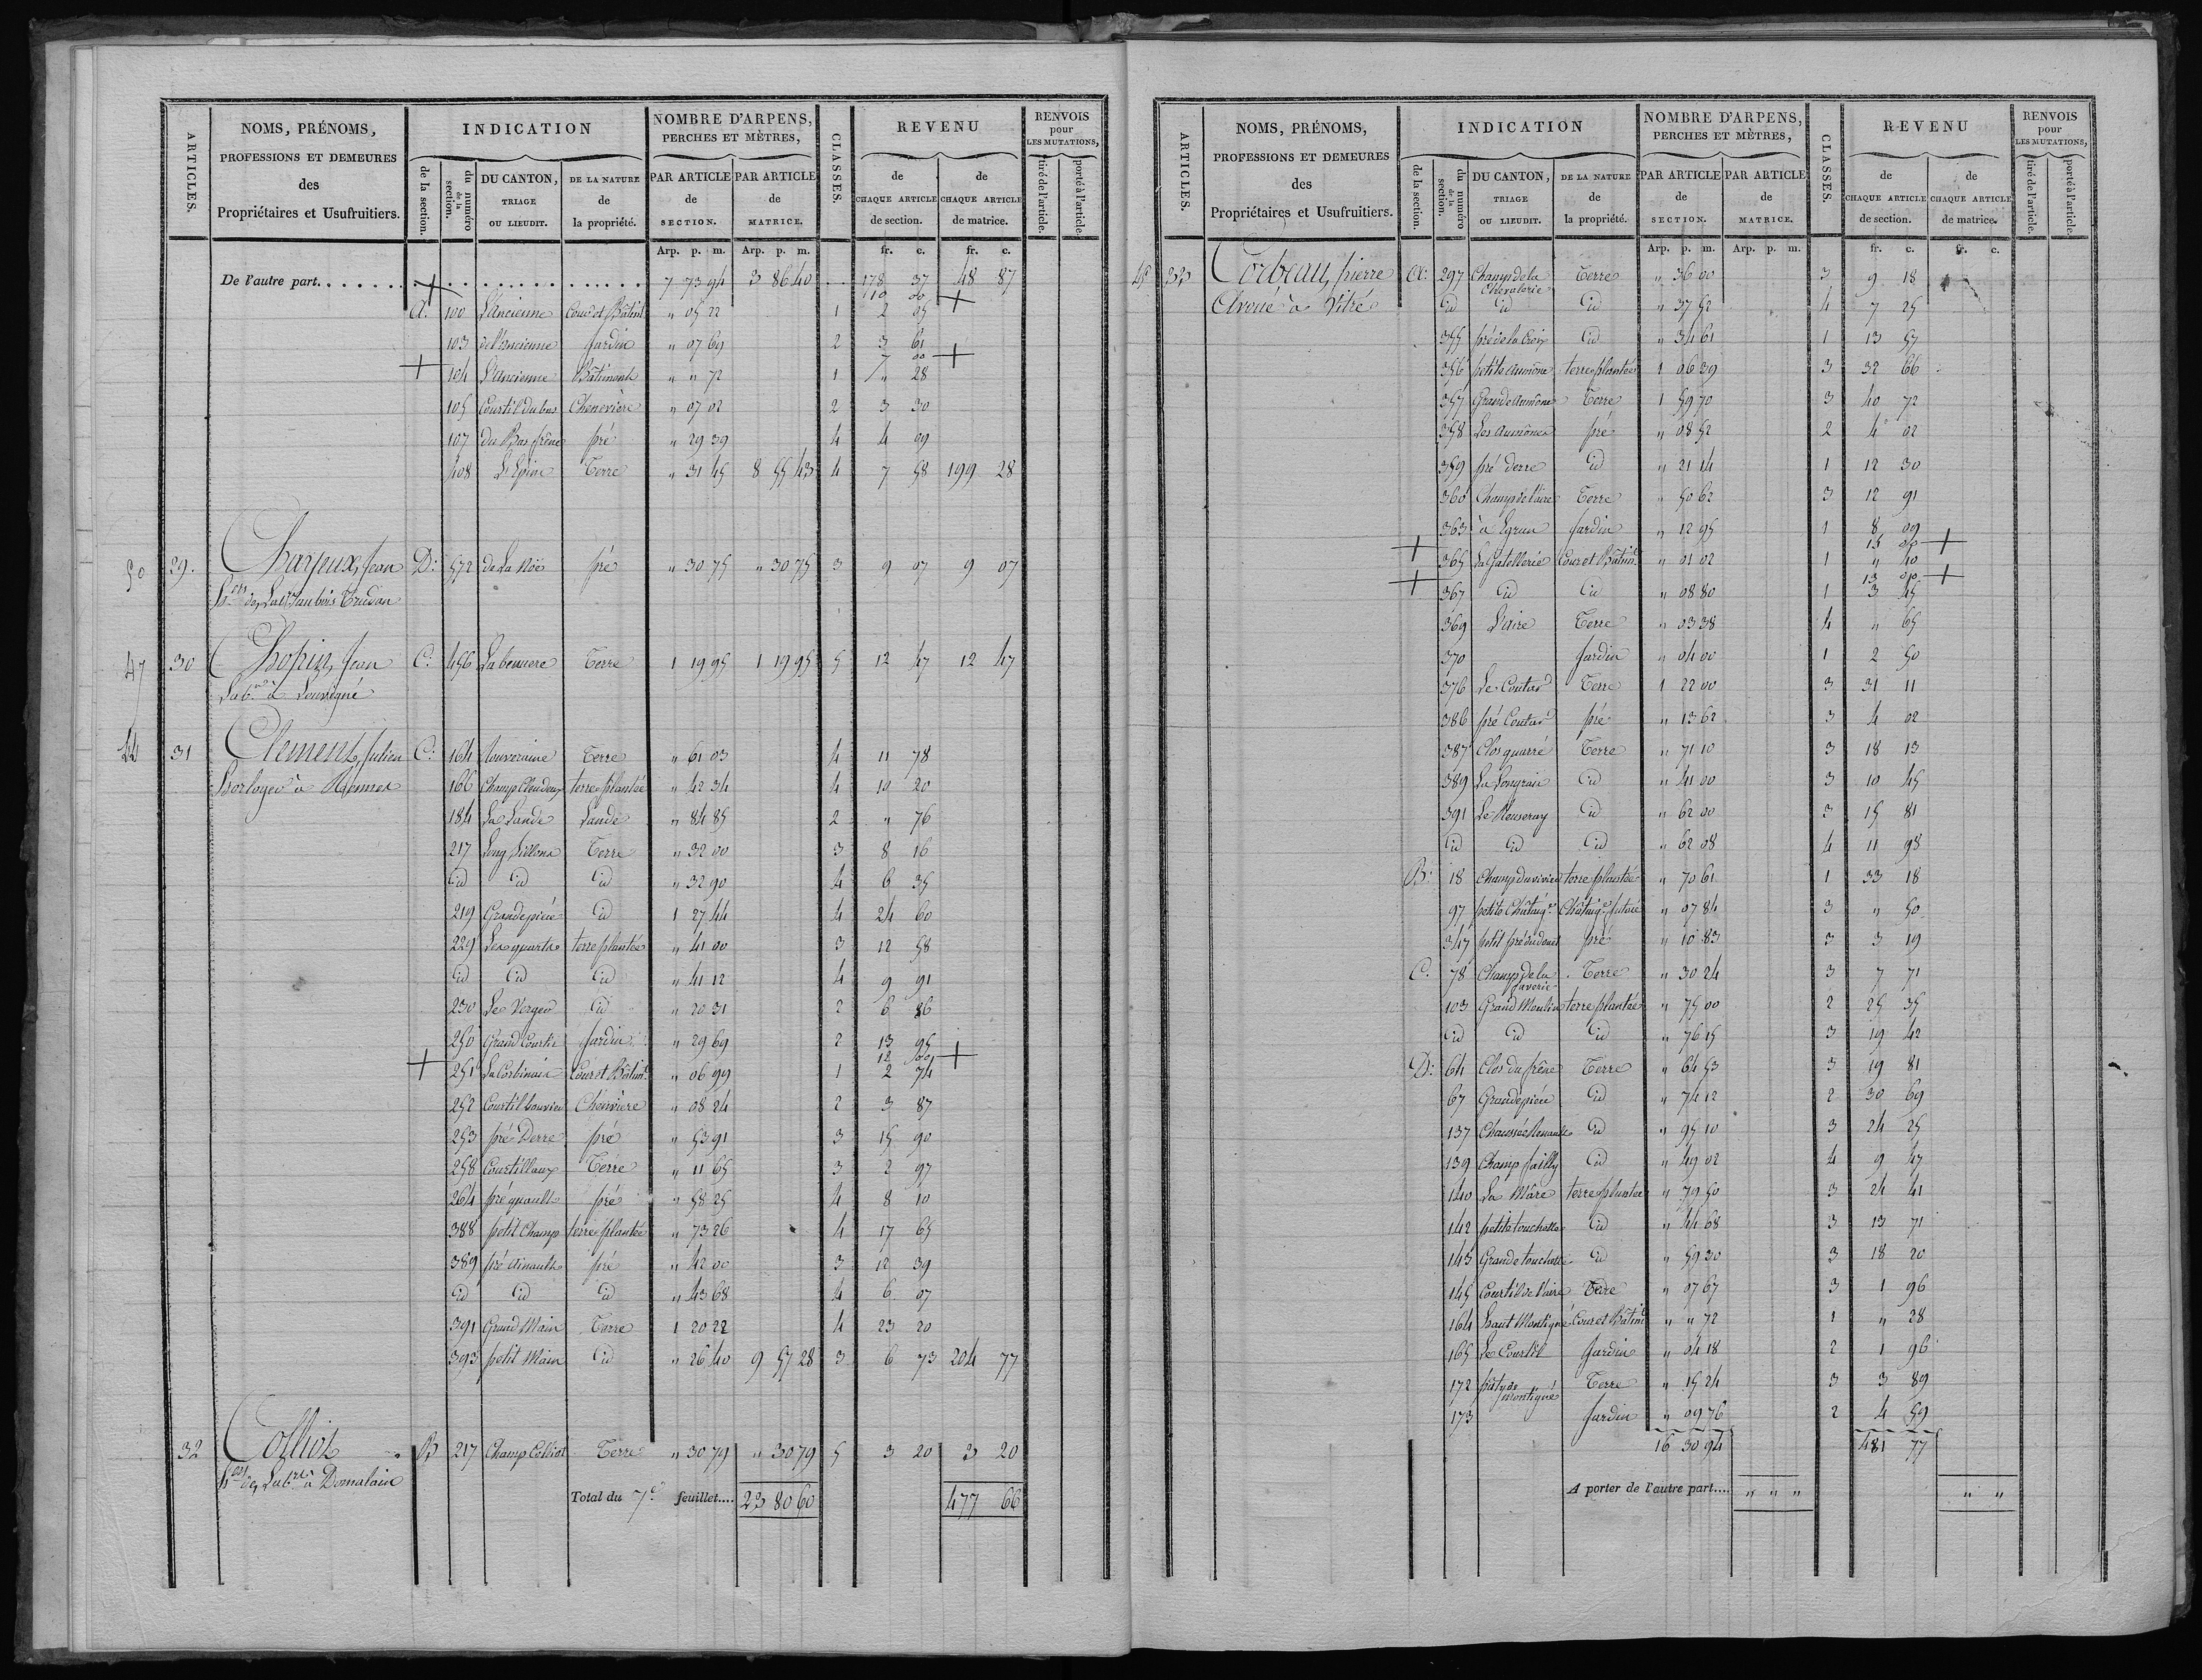 ARTICLES. NOMS, PRÉNOMS, PROFESSIONS ET DEMEURES des Propriétaires et Usufruitiers. INDICATION de la section. du numéro de la section. DU CANTON, TRIAGE OU LIEUDIT. DE LA NATURE de la propriété. NOMBRE D'ARPENS, PERCHES ET MÈTRES, PAR ARTICLE de SECTION. PAR ARTICLE de MATRICE. CLASSES. REVENU de CHAQUE ARTICLE de section. de CHAQUE ARTICLE de matrice. RENVOIS pour LES MUTATIONS, tiré de l'article. porté à l'article.
Arp. p. m. Arp. p. m. fr. c. fr. c.
De l'autre part. + 7 73 94 3 86 40 178 37 48 87
110 00 +
A. 100 L'ancienne Cour et Bâtimt " 05 22 1 2 05
103 de l'ancienne Jardin " 07 69 2 3 61
7 00 +
+ 104 L'ancienne Bâtiment " " 72 1 " 28
105 Courtil du bas Chenevière " 07 02 2 3 30
107 du Bas frêne pré " 29 39 4 4 99
408 L'Epine Terre " 31 45 8 55 43 4 7 58 199 28
50 29. Charjeux, Jean D. 572 de la Noë pré " 30 75 " 30 75 3 9 07 9 07
47 30 Chopin, Jean C. 456 Terre 1 19 95 1 19 95 5 12 47 12 47
Labr à Louvigné
44 31 Clement, Julien C. 164 Terre " 61 03 4 11 78
horloger à Rennes 166 terre plantée " 42 34 4 10 20
184 La Lande Lande " 84 85 2 " 76
217 Long Sillons Terre " 32 00 3 8 16
id id id " 32 90 4 6 35
219 Grande piéce id 1 27 44 4 24 60
229 Les quarts terre plantée " 41 00 3 12 58
id id id " 41 12 4 9 91
230 Le Verger id " 20 31 2 6 86
250 Grand Courtil Jardin " 29 69 2 13 95
12 00 +
+ 251 La Corbinais Cour et Bâtimt " 06 99 1 2 74
252 Courtil bouvier Chenvière " 08 24 2 3 87
253 pré Derre pré " 53 91 3 15 90
258 Courtillaux Terre " 11 65 3 2 97
264 pré quault pré " 58 25 4 8 10
388 petit Champ terre plantée " 73 26 4 17 65
389 pré ainault pré " 42 00 3 12 39
id id id " 43 68 4 6 07
391 Grand Main Terre 1 20 22 4 23 20
393 petit Main id " 26 40 9 57 28 3 6 73 204 77
32 Colliot B 217 Champ Colliot Terre " 30 79 " 30 79 5 3 20 3 20
hers de, Labr à Domalain
Total du 7e feuillet.... 23 80 60 477 66
ARTICLES. NOMS, PRÉNOMS, PROFESSIONS ET DEMEURES des Propriétaires et Usufruitiers. INDICATION de la section. du numéro de la section. DU CANTON, TRIAGE OU LIEUDIT. DE LA NATURE de la propriété. NOMBRE D'ARPENS, PERCHES ET MÈTRES, PAR ARTICLE de SECTION. PAR ARTICLE de MATRICE. CLASSES. REVENU de CHAQUE ARTICLE de section. de CHAQUE ARTICLE de matrice. RENVOIS pour LES MUTATIONS, tiré de l'article. porté à l'article.
Arp. p. m. Arp. p. m. fr. c. fr. c.
33 Corbeau, pierre A. 297 Champ de la Chevalerie Terre " 36 00 3 9 18
Avoué à Vitré id id id " 37 52 4 7 25
355 pré de la Croix id " 34 61 1 13 57
356 petite aumône terre plantée 1 06 39 3 32 66
357 Grande aumône Terre 1 59 70 3 40 72
358 Les aumônes pré " 08 52 2 4 02
359 pré derre id " 21 14 1 12 30
360 Champ de l'aire Terre " 50 62 3 12 91
363 Jardin " 12 95 1 8 09
15 00 +
+ 365 La Gatellerie Cour et Bâtimt " 01 02 1 " 40
13 00 +
+ 367 id id " 08 80 1 3 45
369 L'aire Terre " 03 38 4 " 65
370 Jardin " 04 00 1 2 50
376 Le Coutard Terre 1 22 00 3 31 11
386 pré Coutard pré " 13 62 3 4 02
387 Clos quarré Terre " 71 10 3 18 13
389 La Longrais id " 41 00 3 10 45
391 Le Reuseray id " 62 00 3 15 81
id id id " 62 08 4 11 98
B. 18 Champ du vivier terre plantée " 70 61 1 33 18
97 petite Châtaigr Châtaigr futaie " 07 84 3 " 50
347 petit pré du douet pré " 10 83 3 3 19
C. 78 Champ de la Terre " 30 24 3 7 71
103 Grand Moulin terre plantée " 75 00 2 25 35
id id id " 76 15 3 19 42
D. 64 Clos du frêne Terre " 64 53 3 19 81
67 Grande piéce id " 74 12 2 30 69
137 Chaussée Renault id " 95 10 3 24 25
139 Champ failly id " 49 02 4 9 47
140 La Mare terre plantée " 79 50 3 24 41
142 petite touchette id " 44 68 3 13 71
143 Grande touchette id " 59 30 3 18 20
145 Courtil de l'aire Terre " 07 67 3 1 96
164 haut Montigné Cour et Bâtimt " " 72 1 " 28
165 Le Courtil Jardin " 04 18 2 1 96
172 pâtis de montigné Terre " 15 24 3 3 89
173 Jardin " 09 76 2 4 59
16 30 94 481 77
A porter de l'autre part.... " " " " "